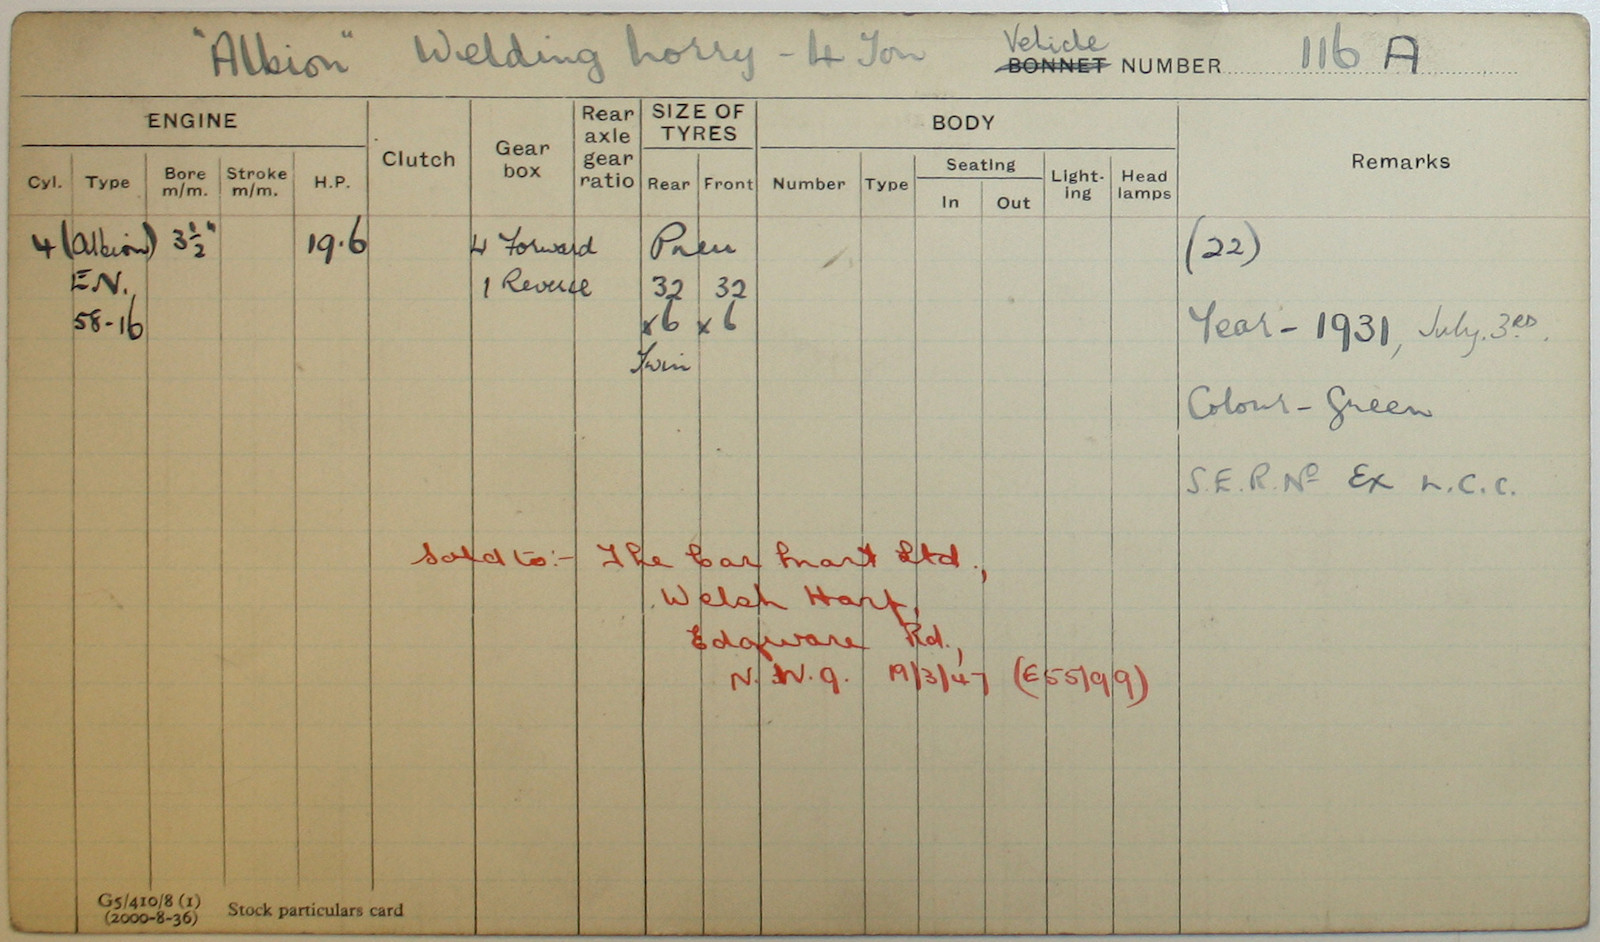 "Albion" Welding Lorry - 4 Ton Vehicle BONNET NUMBER 116 A
ENGINE Clutch Gear box Rear axle gear ratio SIZE OF TYRES BODY Remarks
Cyl. Type Bore m/m. Stroke m/m. H.P. Rear Front Number Type Seating Light-ing Head lamps
In Out
4 (Albion) 3½" 19.6 4 Forward Pneu (22)
E.N. 1 Reverse 32 32
58-16 x6 x6 Year - 1931, July. 3RD.
Twin
Colour - Green
S.E.R. No Ex L.C.C.
Sold to:- The Car Mart Ltd.,
Welsh Harp,
Edgware Rd.,
N.W.9. 19/3/47 (E55/99)
G5/410/8 (1)
(2000-8-36) Stock particulars card